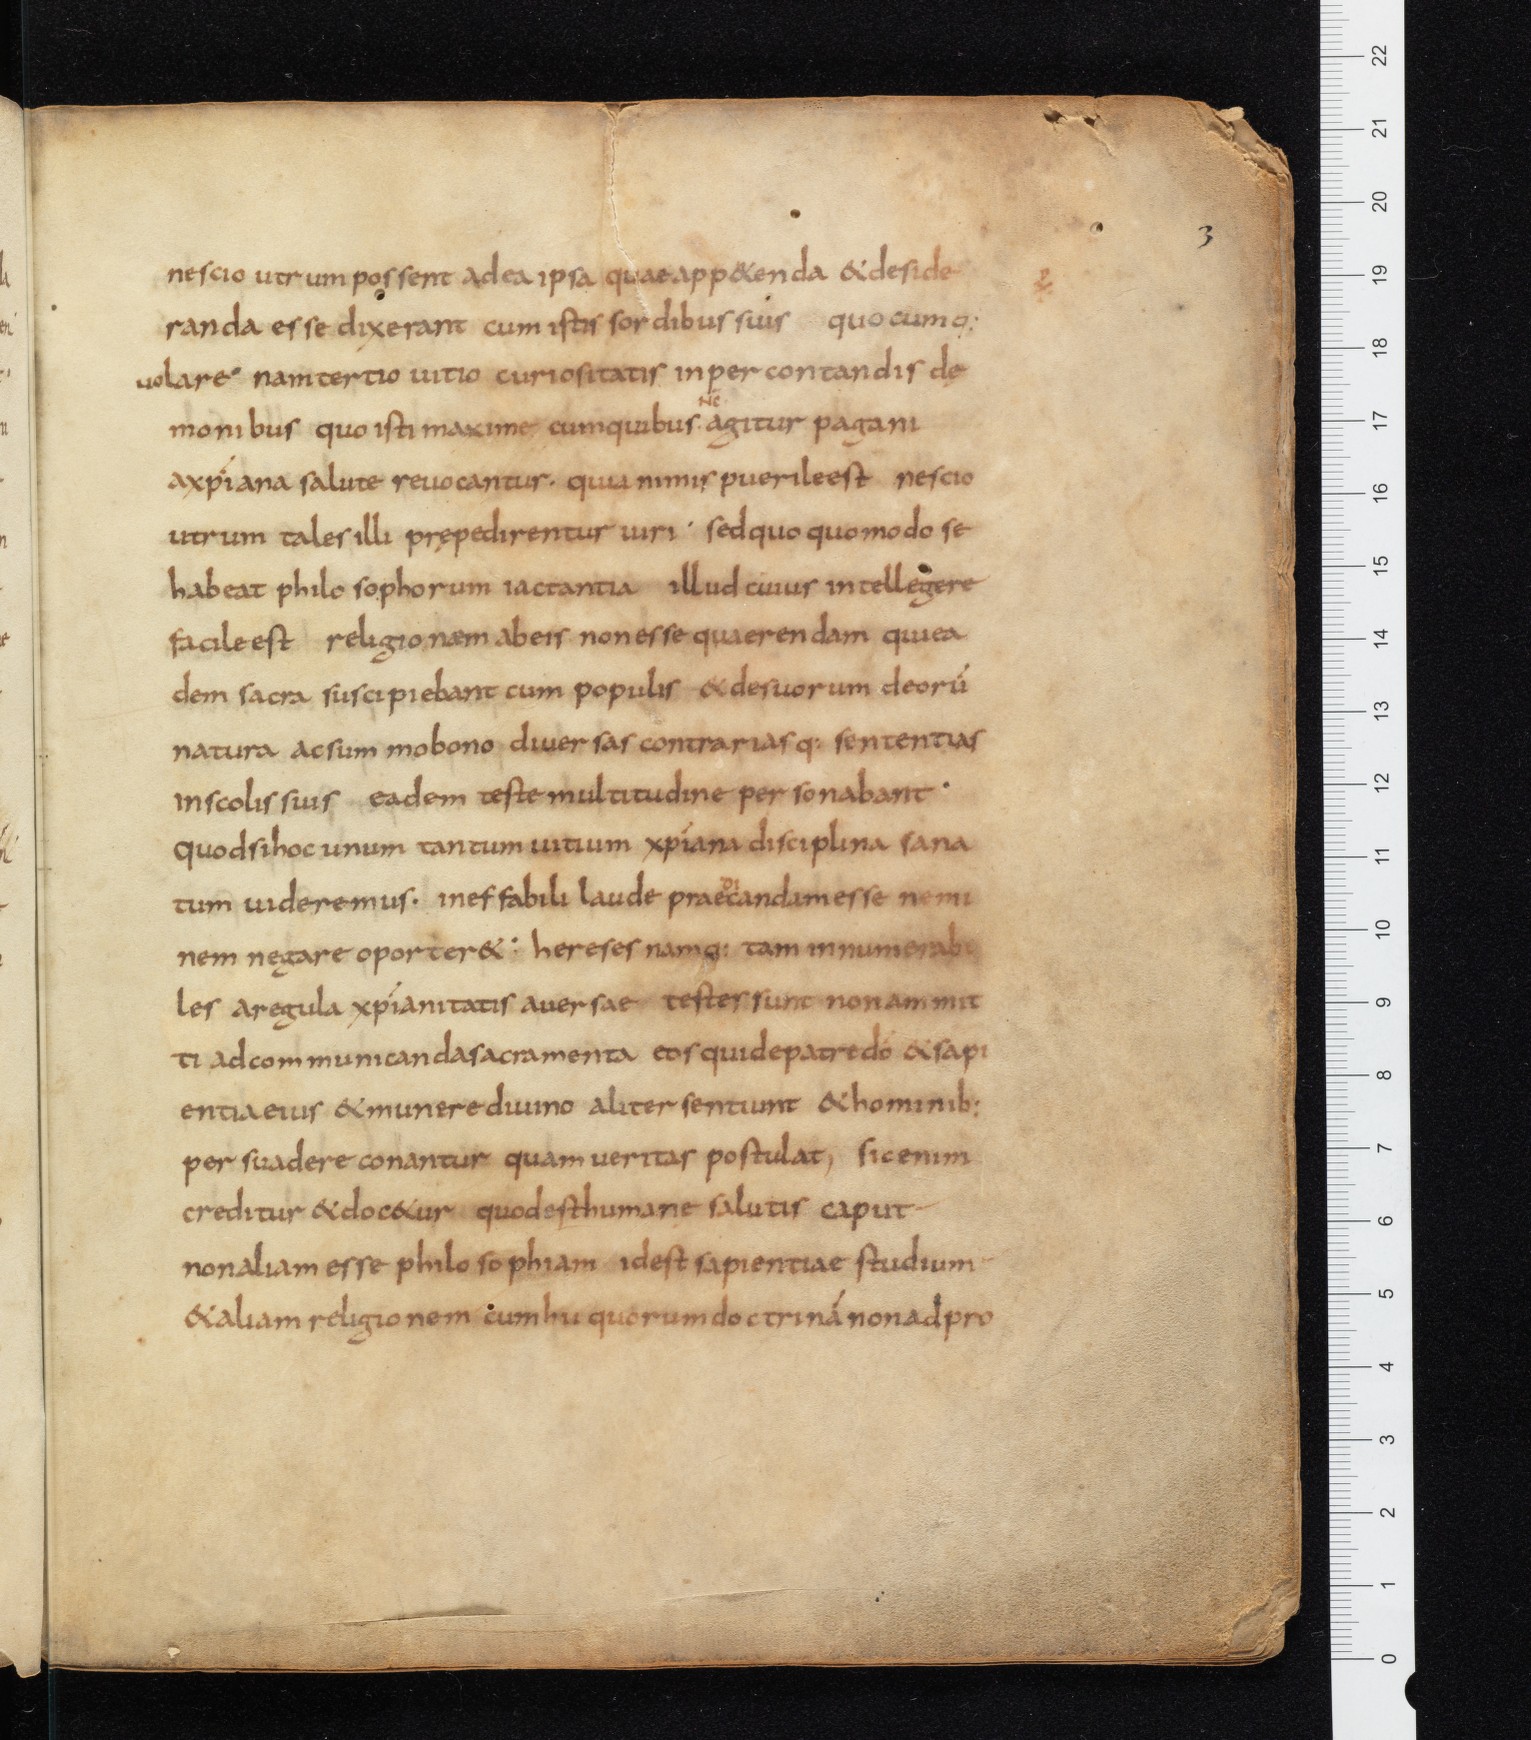 3
nescio utrum possent ad ea ipsa quae app&enda & deside
randa esse dixerant cum istis sordibus suis quocumq:
uolare· nam tertio uitio curiositatis in percontandis de
monibus quo isti maxime cum quibus nc agitur pagani
a xp̄iana salute reuocantur· quia nimis puerile est nescio
utrum tales illi prępedirentur uiri· sed quo quomodo se
habeat philosophorum iactantia illud cuius intellegere
facile est religionæm ab eis non esse quaerendam qui ea
dem sacra suscipiebant cum populis & de suorum deorū
natura ac summo bono diuersas contrariasq: sententias
in scolis suis eadem teste multitudine personabant·
quod si hoc unum tantum uitium xp̄iana disciplina sana
tum uideremus· ineffabili laude praedicandam esse nemi
nem negare oporter&· hereses namq: tam innumerabi
les a regula xp̄ianitatis auersae testes sunt non ammit
ti ad communicanda sacramenta eos qui de patre dō & sapi
entia eius & munere diuino aliter sentiunt & hominib:
persuadere conantur quam ueritas postulat, sic enim
creditur & doc&ur quod est humane salutis caput
non aliam esse philosophiam id est sapientiae studium
& aliam religionem cum hii quorum doctrinā non adpro